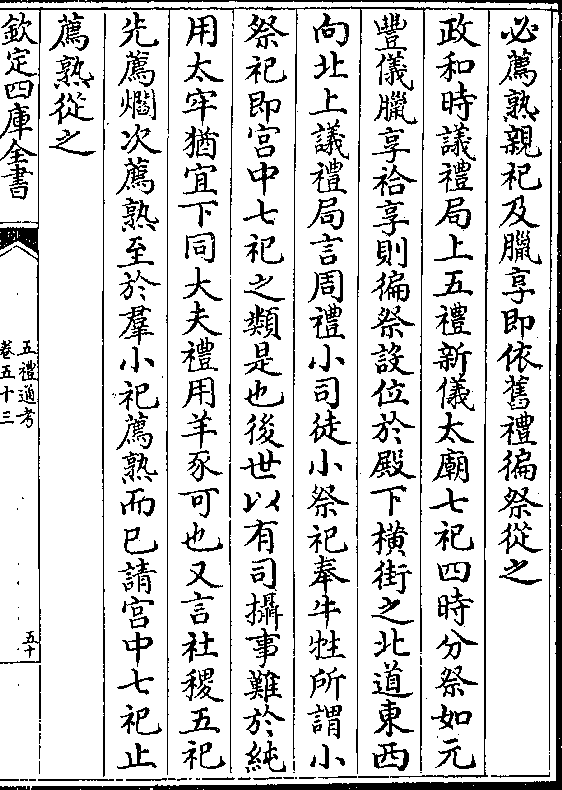 必薦熟親祀及臘享即依舊禮徧祭從之
政和時議禮局上五禮新儀太廟七祀四時分祭如元
豐儀臘享祫享則徧祭設位於殿下橫街之北道東西
向北上議禮局言周禮小司徒小祭祀奉牛牲所謂小
祭祀即宫中七祀之類是也後世以有司攝事難於純
用太牢猶宜下同大夫禮用羊豕可也又言社稷五祀
先薦爓次薦熟至於羣小祀薦熟而已請宫中七祀止
薦熟從之
欽定四庫全書
五禮通考
卷五十三
五十